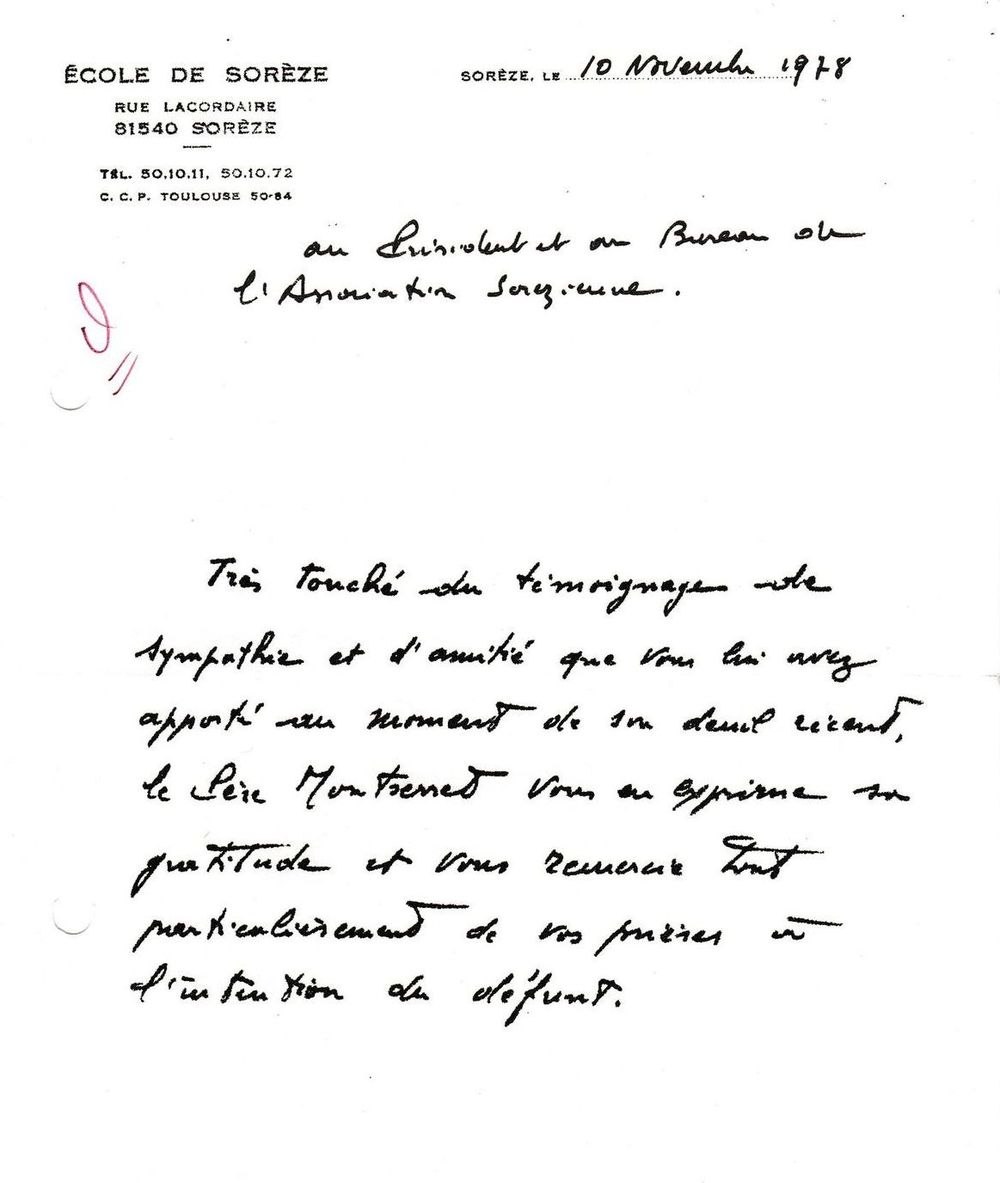 ÉCOLE DE SORÈZE
RUE LACORDAIRE
81540 SORÈZE
TÉL. 50.10.11, 50.10.72
C. C. P. TOULOUSE 50-84
SORÈZE, LE 10 Novembre 1978
au Président et au Bureau de
l'Association Sorézienne.
Très touché du témoignage de
sympathie et d'amitié que vous lui avez
apporté au moment de son deuil récent,
le Père Montserret vous en exprime sa
gratitude et vous remercie tout
particulièrement de vos prières à
l'intention du défunt.